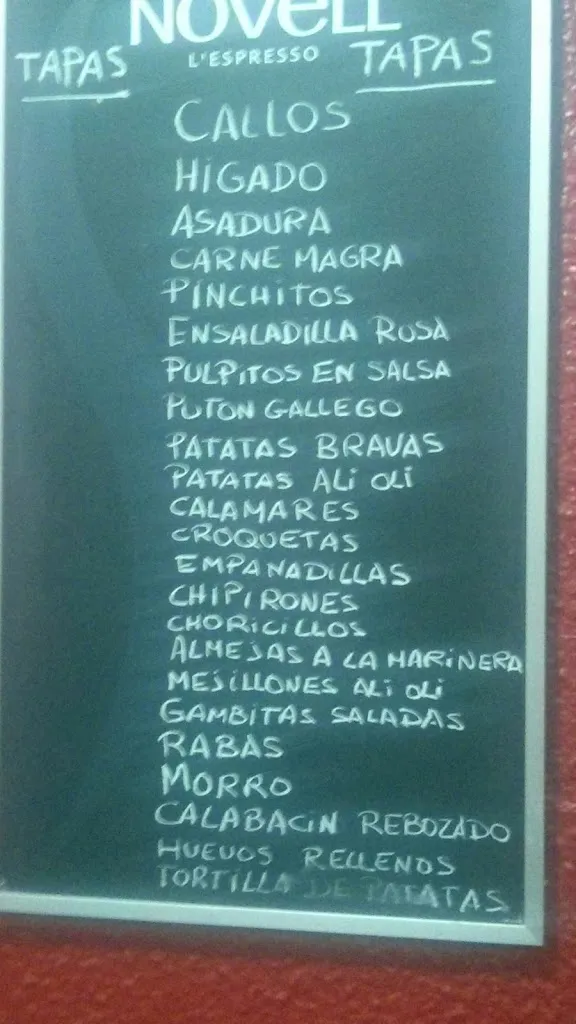 NOVELL
TAPAS L'ESPRESSO TAPAS
CALLOS
HIGADO
ASADURA
CARNE MAGRA
PINCHITOS
ENSALADILLA ROSA
PULPITOS EN SALSA
PUTON GALLEGO
PATATAS BRAVAS
PATATAS ALI OLI
CALAMARES
CROQUETAS
EMPANADILLAS
CHIPIRONES
CHORICILLOS
ALMEJAS A LA MARINERA
MEJILLONES ALI OLI
GAMBITAS SALADAS
RABAS
MORRO
CALABACIN REBOZADO
HUEVOS RELLENOS
TORTILLA DE PATATAS